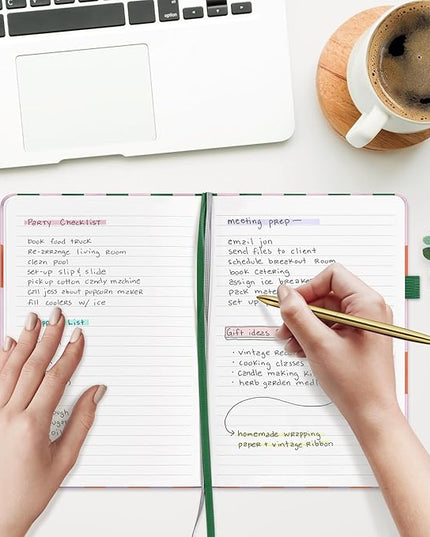 option
Party Checklist
book food truck
Re-arrange living room
clean pool
set-up slip & slide
pickup cotton candy machine
call jess about popcorn maker
fill coolers w/ ice
List
meeting prep —
email jon
send files to client
schedule breakout room
book catering
assign ice
pack
set up
Gift ideas
• vintage
• cooking classes
• candle making
• herb garden
homemade wrapping
paper + vintage ribbon